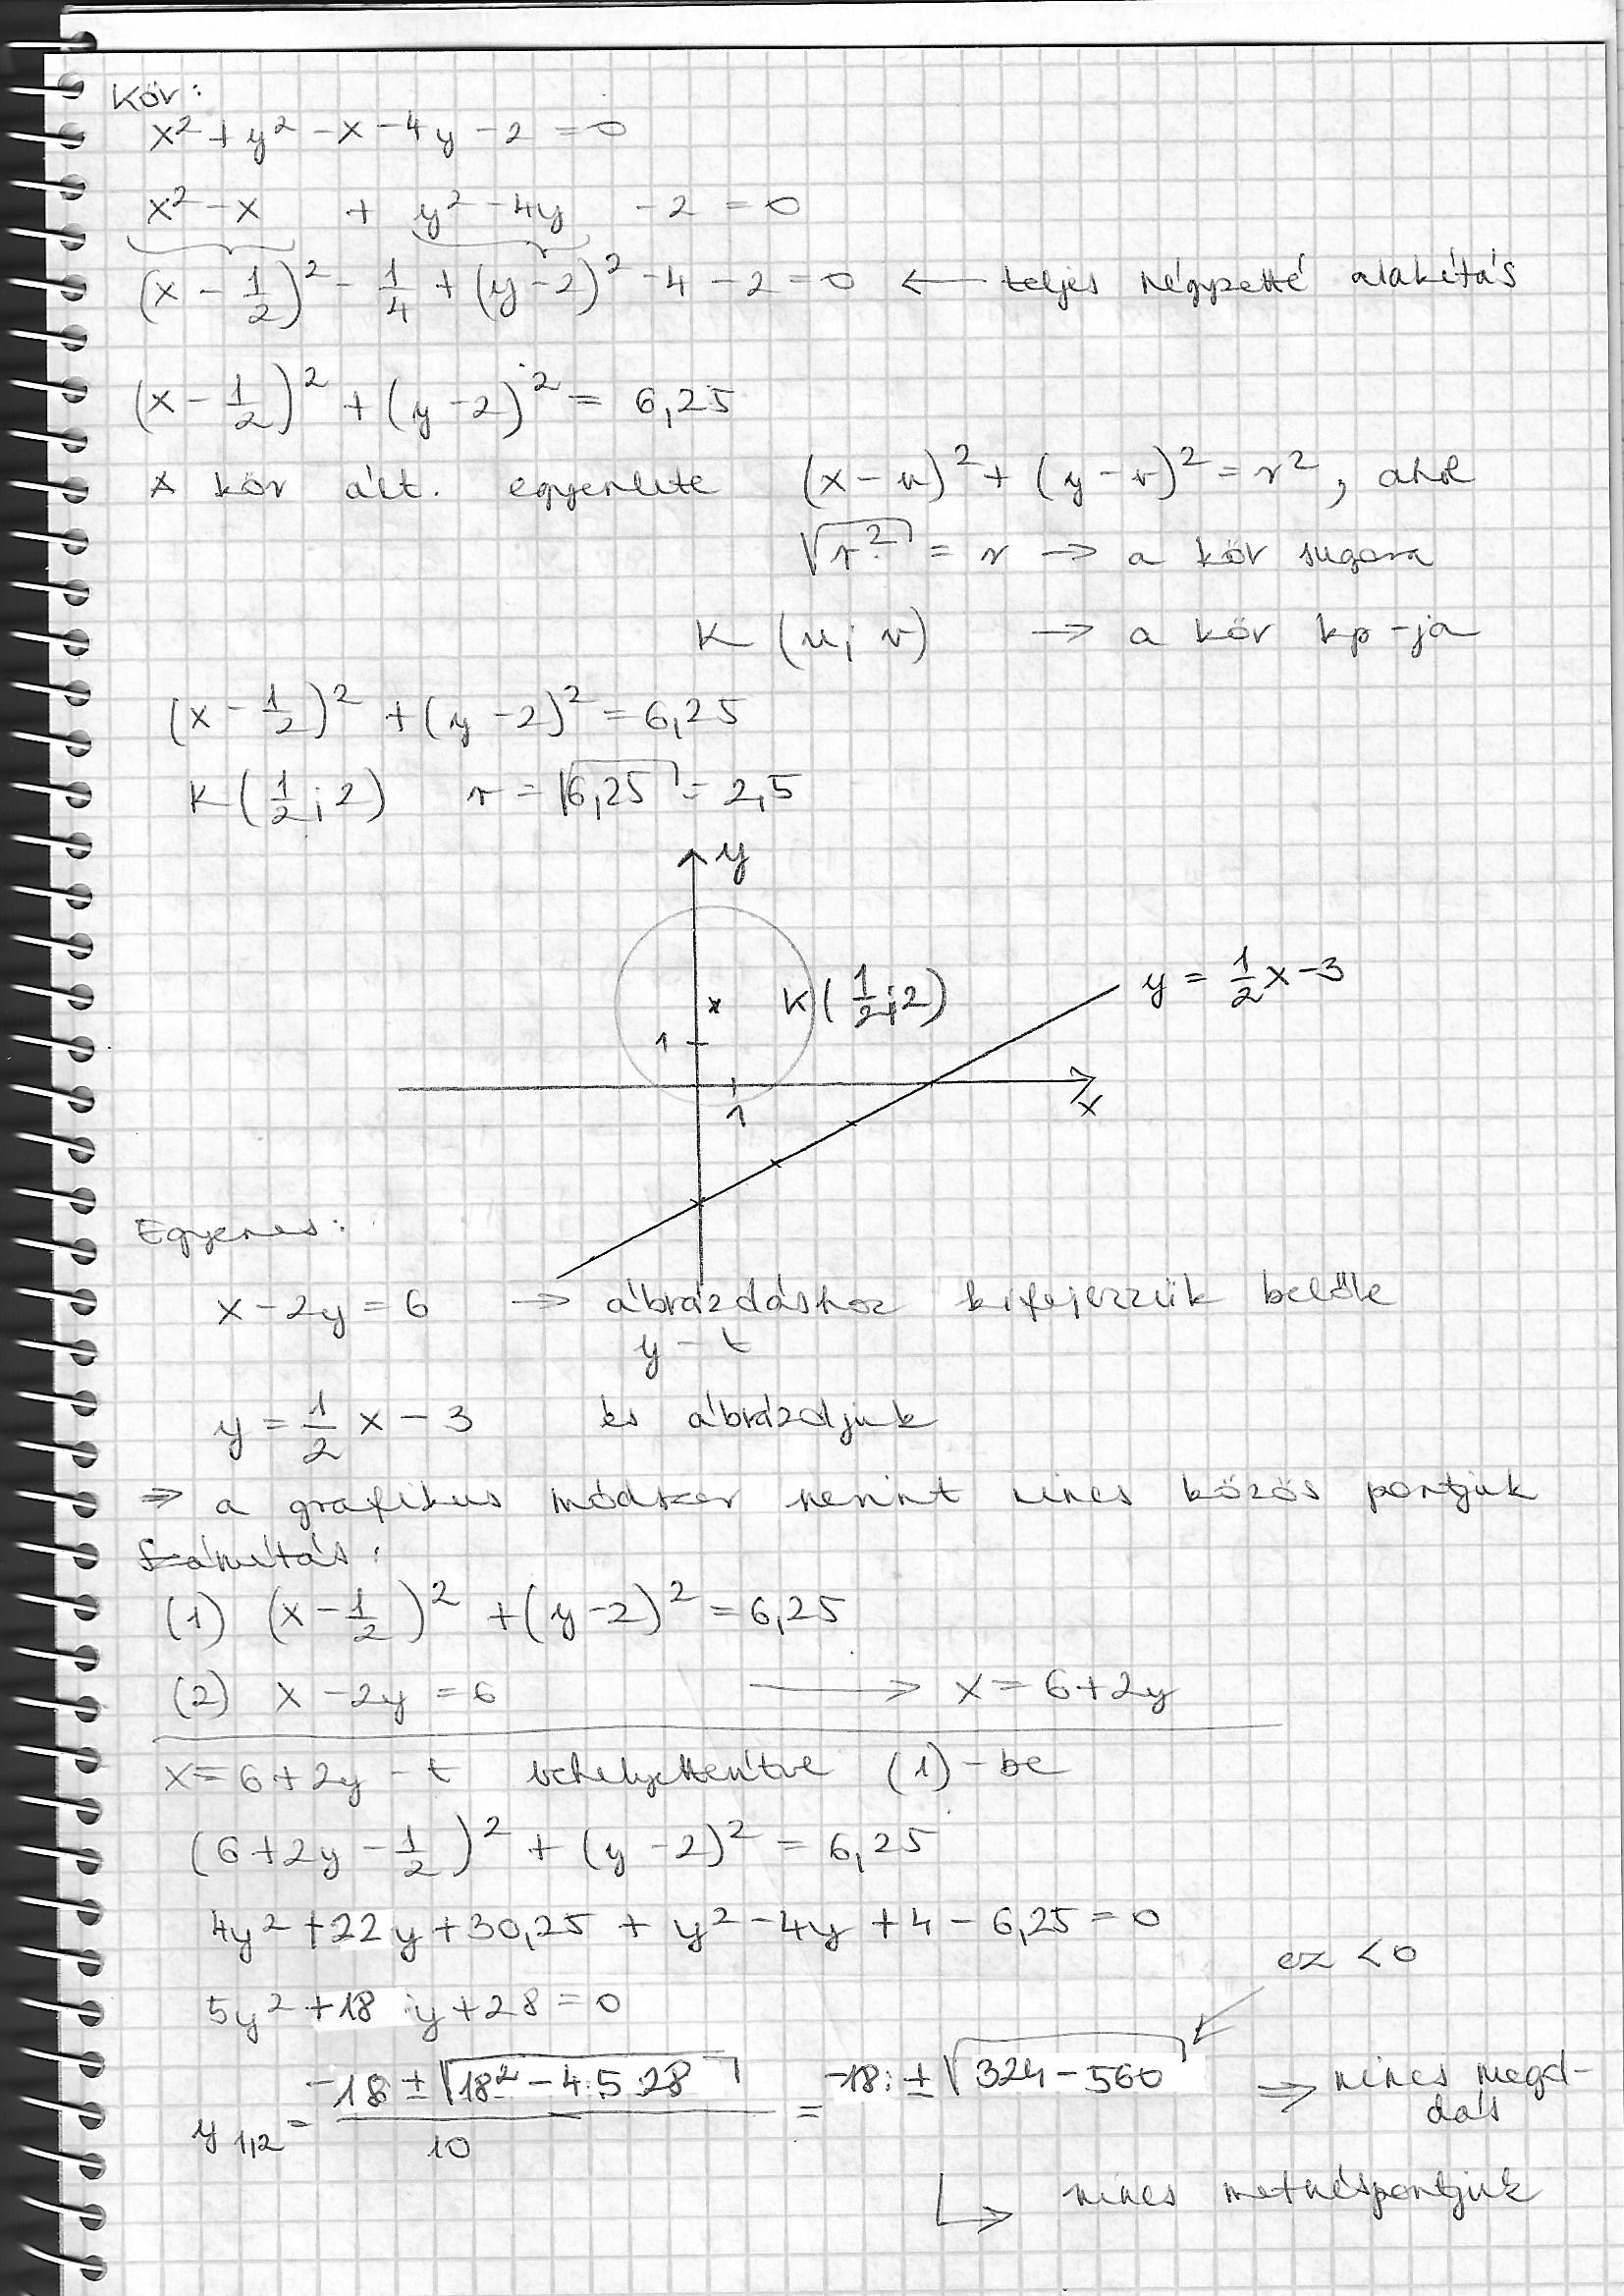 Kör:
x² + y² - x - 4y - 2 = 0
x² - x + y² - 4y - 2 = 0
(x - 1/2)² - 1/4 + (y - 2)² - 4 - 2 = 0 ← teljes négyzetté alakítás
(x - 1/2)² + (y - 2)² = 6,25
A kör ált. egyenlete (x - u)² + (y - v)² = r², ahol
√r² = r → a kör sugara
K (u; v) → a kör kp-ja
(x - 1/2)² + (y - 2)² = 6,25
K (1/2; 2) r = √6,25 = 2,5
y
K (1/2; 2)
y = 1/2 x - 3
1
1
x
Egyenes:
x - 2y = 6 → ábrázoláshoz kifejezzük belőle
y - t
y = 1/2 x - 3 és ábrázoljuk
⇒ a grafikus módszer szerint nincs közös pontjuk
Számítás:
(1) (x - 1/2)² + (y - 2)² = 6,25
(2) x - 2y = 6 → x = 6 + 2y
x = 6 + 2y - t behelyettesítve (1) - be
(6 + 2y - 1/2)² + (y - 2)² = 6,25
4y² + 22y + 30,25 + y² - 4y + 4 - 6,25 = 0
ez < 0
5y² + 18y + 28 = 0
y1,2 = (-18 ± √(18² - 4·5·28)) / 10 = -18 ± √(324 - 560) ⇒ nincs megol-
dás
↳ nincs metszéspontjuk